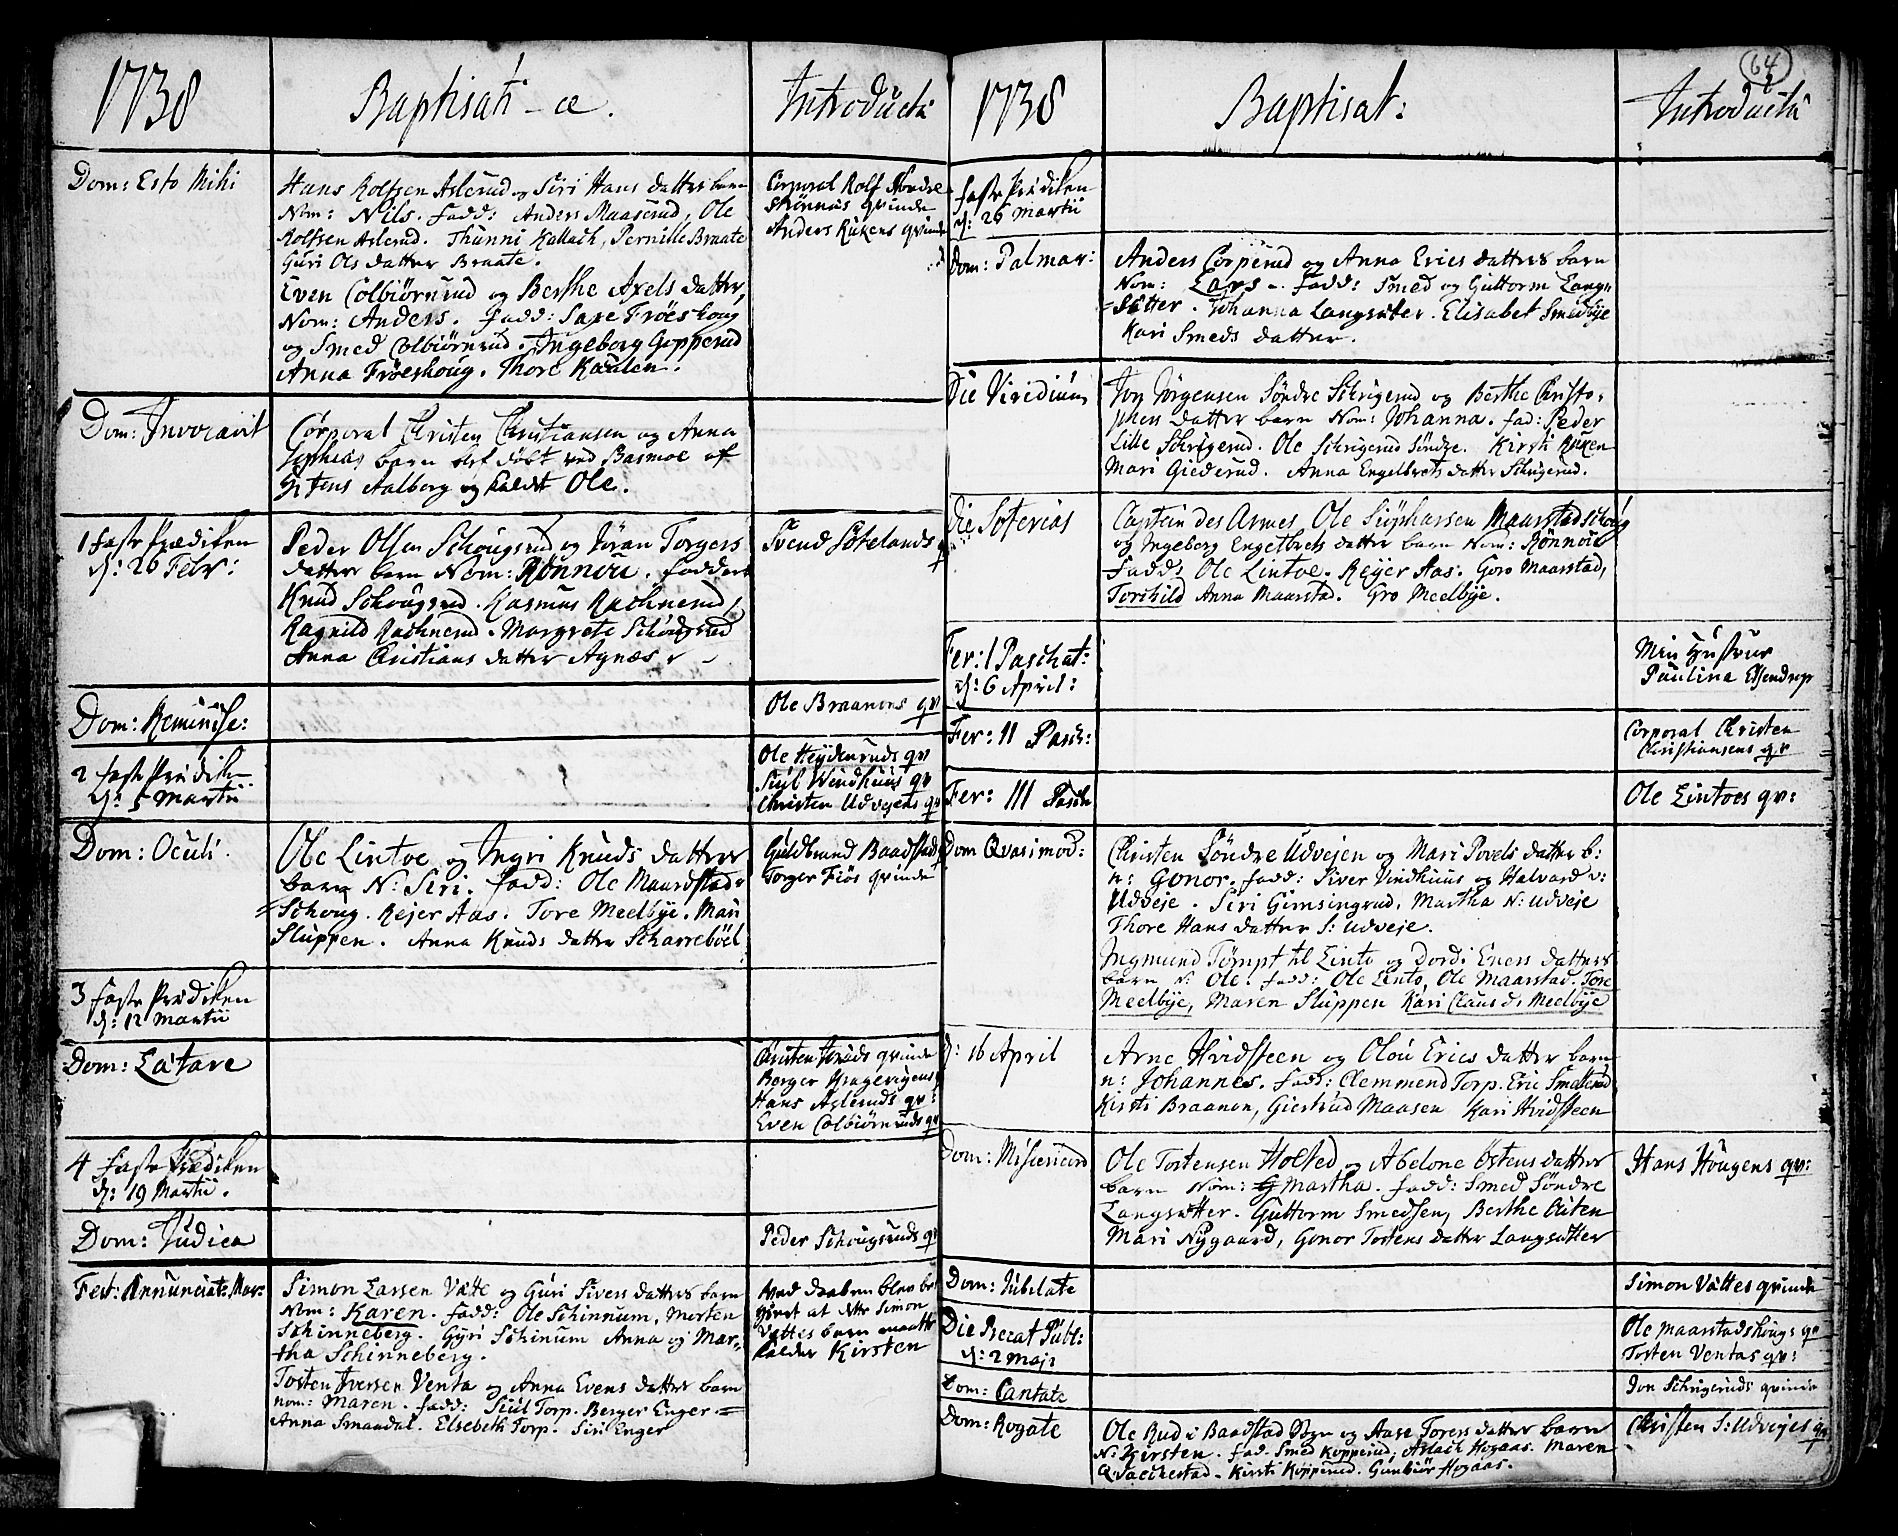 1738
Baptisati - æ.
Introducti
Dom: Esto Mihi
Hans Rolfsen Aslerud og Siri Hans datters barn
Nom: Nils. Fadd: Anders Maaserud, Ole
Rolfsen Aslerud. Thurmi Kallach, Pernille Braate
Guri Ols datter Braate.
Even Colbiørnrud og Berthe Axels datter,
Nom: Anders. Fadd: Saxe Frøeshoug
og Smed Colbiørnrud. Ingeborg Gopperud
Anna Frøeshoug. Thore Kaalen.
Corporal Rolf Nordre
Skinnes qvinde
Anders Rukens qvinde
Dom: Invocavit
Corporal Christen Christiansen og Anna
barn blef døbt ved Basmoe af
Hr Jens Aalborg og kaldet Ole.
1 Faste Prædiken
d: 26 Febr:
Peder Olsen Schougsrud og Jøran Torgers
datters barn Nom: Rønnou. Faddere
Knud Schougsrud. Rasmus Rachnerud,
Ragnild Rachnerud. Margrete Schougsrud
Anna Christians datter Agnæs.
Svend Søtelands q
Dom: Reminisc:
Ole Braanens qv
2 Faste Prædik
d: 5 Martii
Ole Heydenruds qv
Siul Windhuus qv
Christen Udvejens qv
Dom: Oculi.
Ole Lintoe og Ingri Knuds datters
barn N: Siri. Fadd: Ole Maarstad-
Schoug. Rejer Aas. Tore Meelbye. Mari
Sluppen. Anna Knuds datter Scharrebøel
Guldbrand Baadstad
Torger Fiøs qvinde
3 Faste Prædiken
d: 12 Martii
Dom: Lætare
Christen Huuds qvinde
Berger Kragerigens
Hans Asleruds qv:
Even Colbiørnruds qv
4 Faste Prædiken
d: 19 Martii.
Dom: Judica
Peder Schougsruds qv
Fest: Annunciat: Mar:
Simon Larsen Vætte og Guri Sivers datters barn
Nom: Karen. Fadd: Ole Schinnum, Morten
Schinneberg. Gyri Schinum Anna og Mar-
tha Schinneberg.
Torsten Iversen Venta og Anna Evens datters barn
nom: Maren. Fadd: Siul Torp. Berger Enger.
Anna Smaadal. Elsebeth Torp. Siri Enger
Ved daaben blev be
giæret at dette Simon
Vættes barn maatte
kaldes Kirsten
64
1738
Baptisat:
Introducti
Faste Prædiken
d: 26 Martii
Dom: Palmar:
Anders Corperud og Anna Erics datters barn
Nom: Lars. Fadd: Smed og Guttorm Lang-
sætter. Johanna Langsæter. Elisabet Smedbye
Kari Smeds datter.
Die Viridium
Jon Jørgensen Søndre Schrigerud og Berthe Christo-
phers datters barn Nom: Johanna. fad: Peder
Lille Schrigerud. Ole Schrigerud Søndre. Kirsti Ruken
Mari Giederud. Anna Engelbrets datter Schrigerud.
Die Soterias
Captein des Armes Ole Siuphassen Maarstadschoug
og Ingeberg Engelbrets datters barn Nom: Rønnou
Fadd: Ole Lintoe. Rejer Aas. Goro Maarstad,
Torchild Anna Maarstad. Gro Meelbye.
Fer: 1 Paschat:
d: 6 April:
Min Hustrue
Paulina Elsendrup
Fer: 11 Pasch:
Corporal Christen
Christiansens qv
Fer: 111 Pasch
Ole Lintoes qv:
Dom Qvasimod:
Christen Søndre Udvejen og Mari Povels datter b:
n: Gonor. Fadd: Siver Vindhuus og Halvard v:
Udveje. Siri Gimsingrud. Martha N: Udveje
Thore Hans datter S: Udveje.
Ingmund Tømpt til Linto og Dordi Eners datters
barn N: Ole. Fadd: Ole Linto, Ole Maarstad. Tore
Meelbye, Maren Sluppen Kari Claus d: Meelbye
d: 16 April
Arne Hvidsteen og Olou Erics datters barn
n: Johannes. Fadd: Clemmend Torp. Eric Smellerud
Kirsti Braanen, Giertrud Maasen Kari Hvidsteen
Dom: Misericord
Ole Torstensen Holsted og Abelone Østens datters
barn Nom: Martha. Fadd: Smed Søndre
Langsætter. Guttorm Smedsen, Berthe Outen
Mari Nygaard, Gonor Tostens datter Langsætter
Hans Hougens qv:
Dom: Jubilate
Simon Vættes qvinde
Die Precat Publ:
d: 2 Maji
Ole Maarstadshougs qv
Tosten Ventas qv:
Dom: Cantate
Jon Schrigeruds qvinde
Dom: Rogate
Ole Rud i Baadstad Sogn og Aase Torers datters barn
N: Kirsten. Fad. Smed Kopperud, Aslach Hogaas. Maren
Qvachestad. Kirsti Kopperud. Gunbiør Hogaas.
Christen S: Udvejes qv